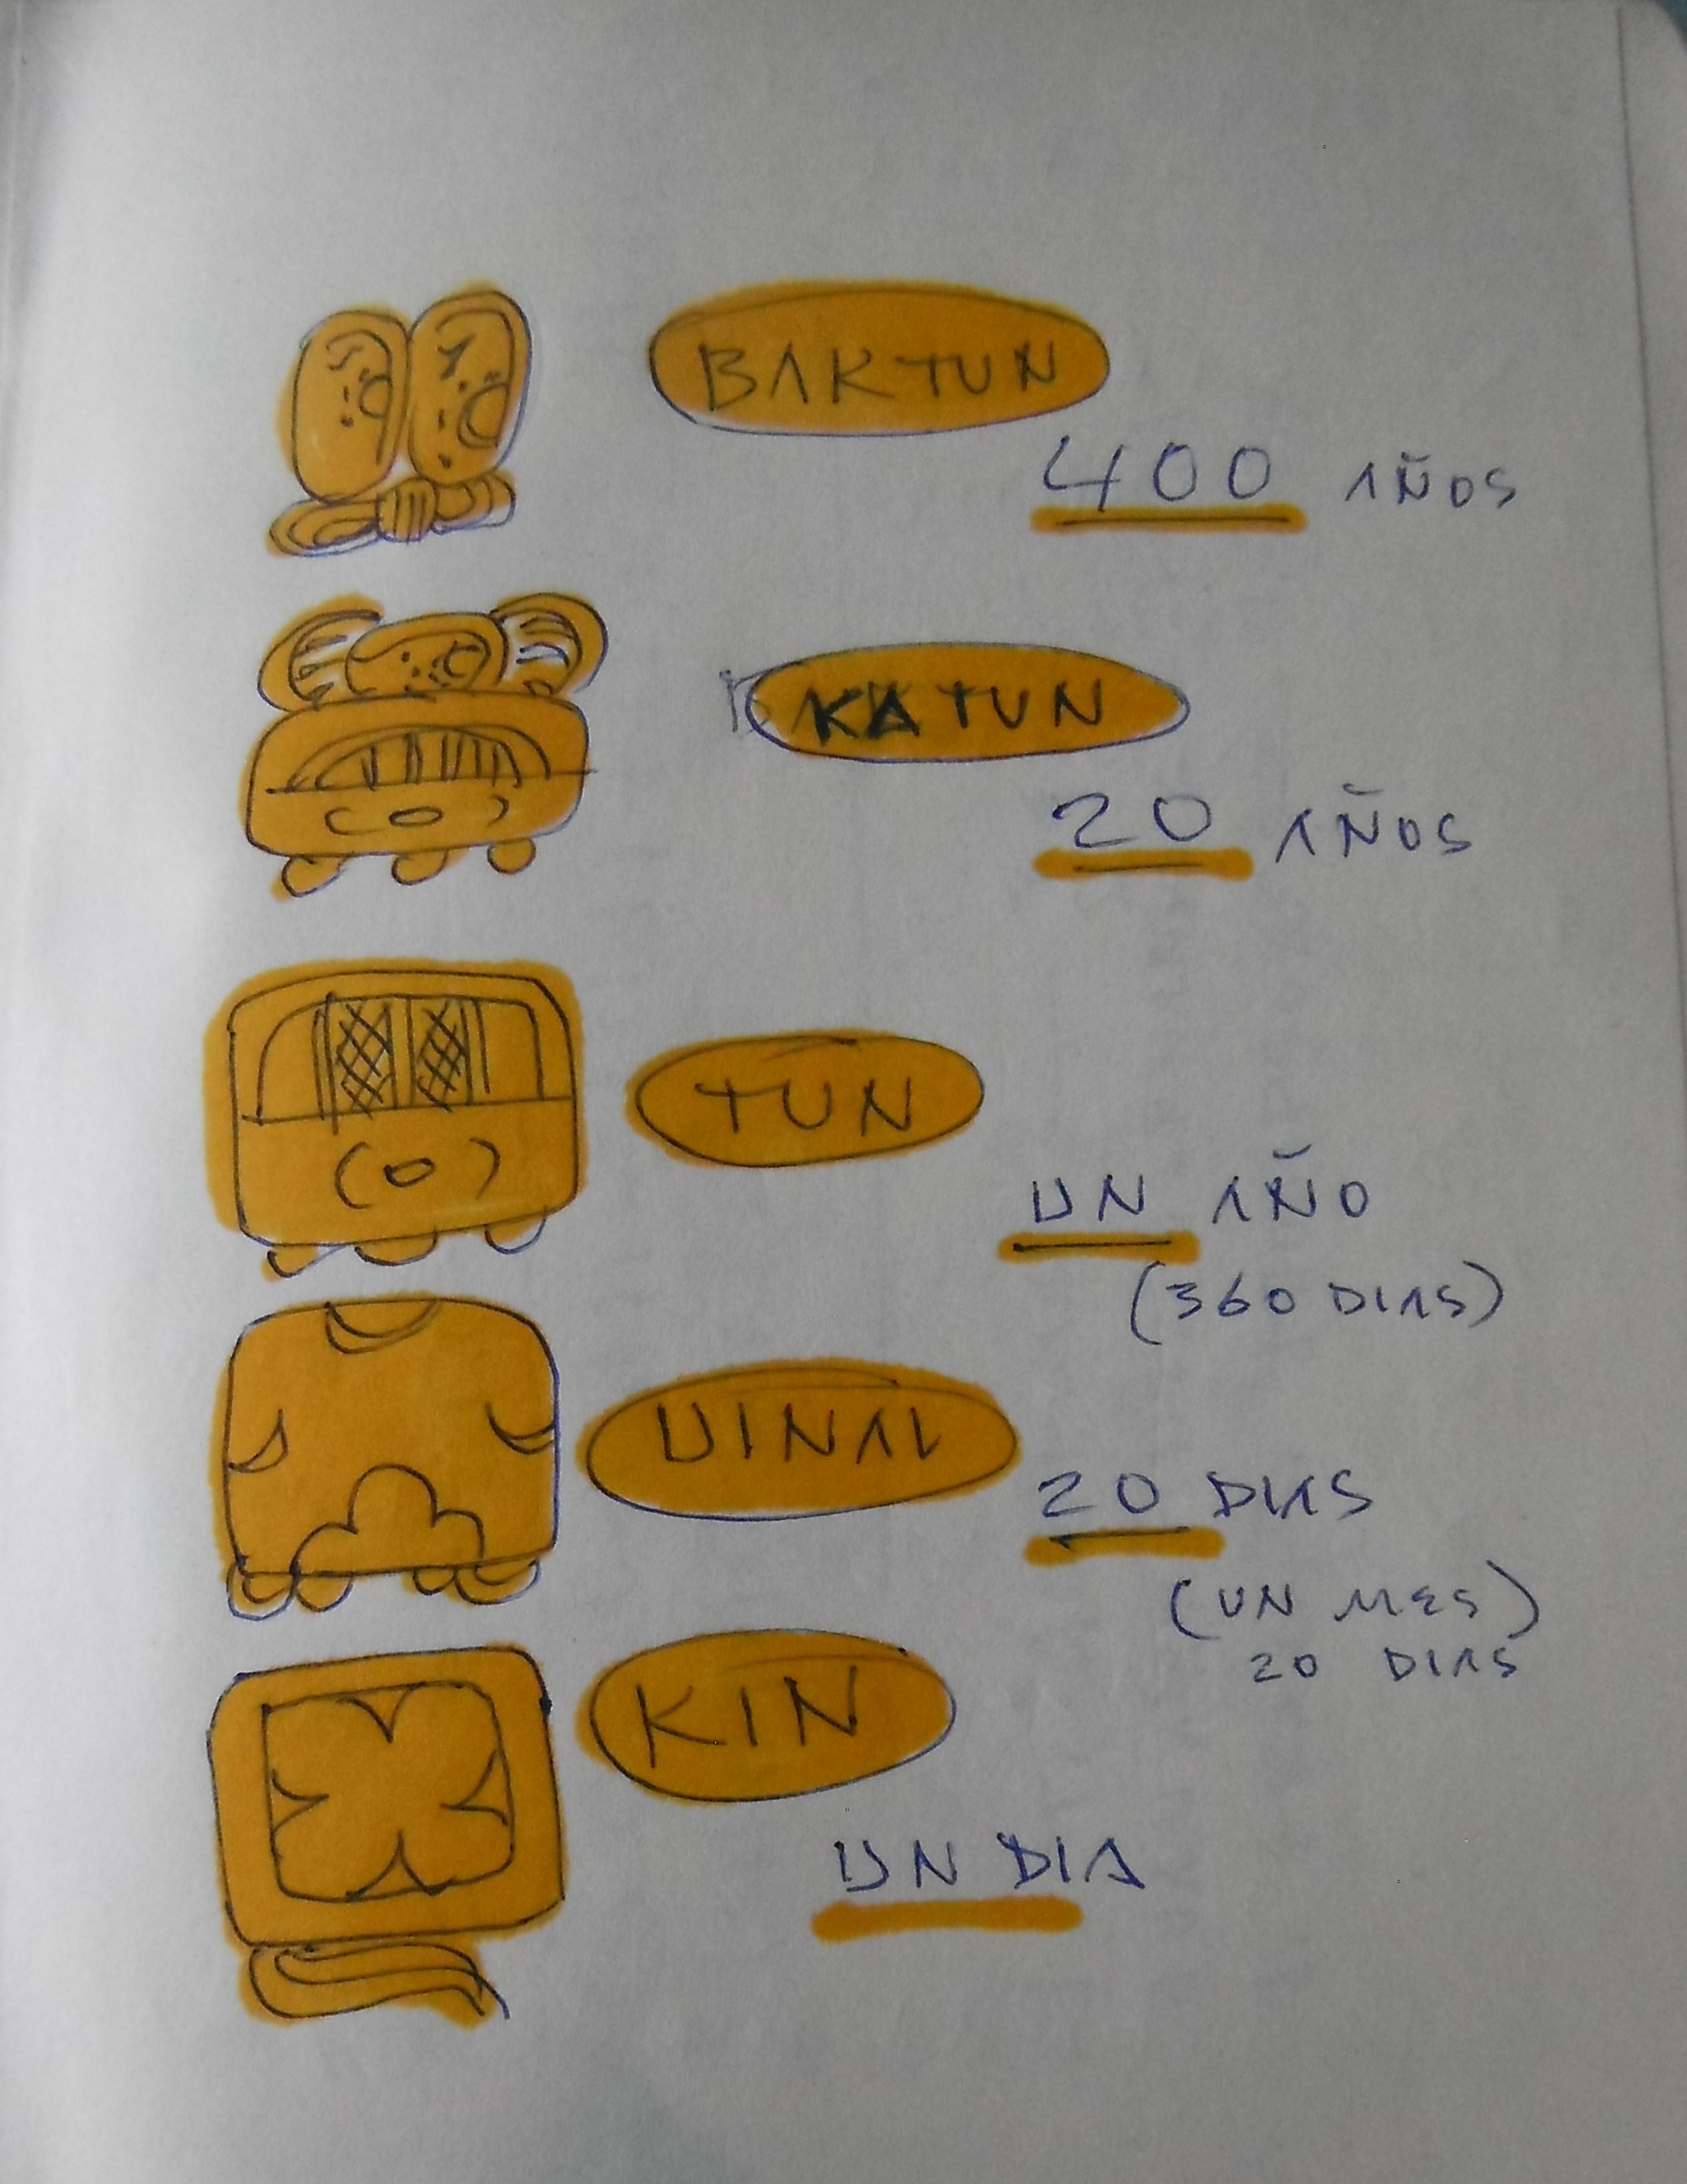 BAKTUN
400 AÑOS
KATUN
20 AÑOS
TUN
UN AÑO
(360 DIAS)
UINAL
20 DIAS
(UN MES)
20 DIAS
KIN
UN DIA